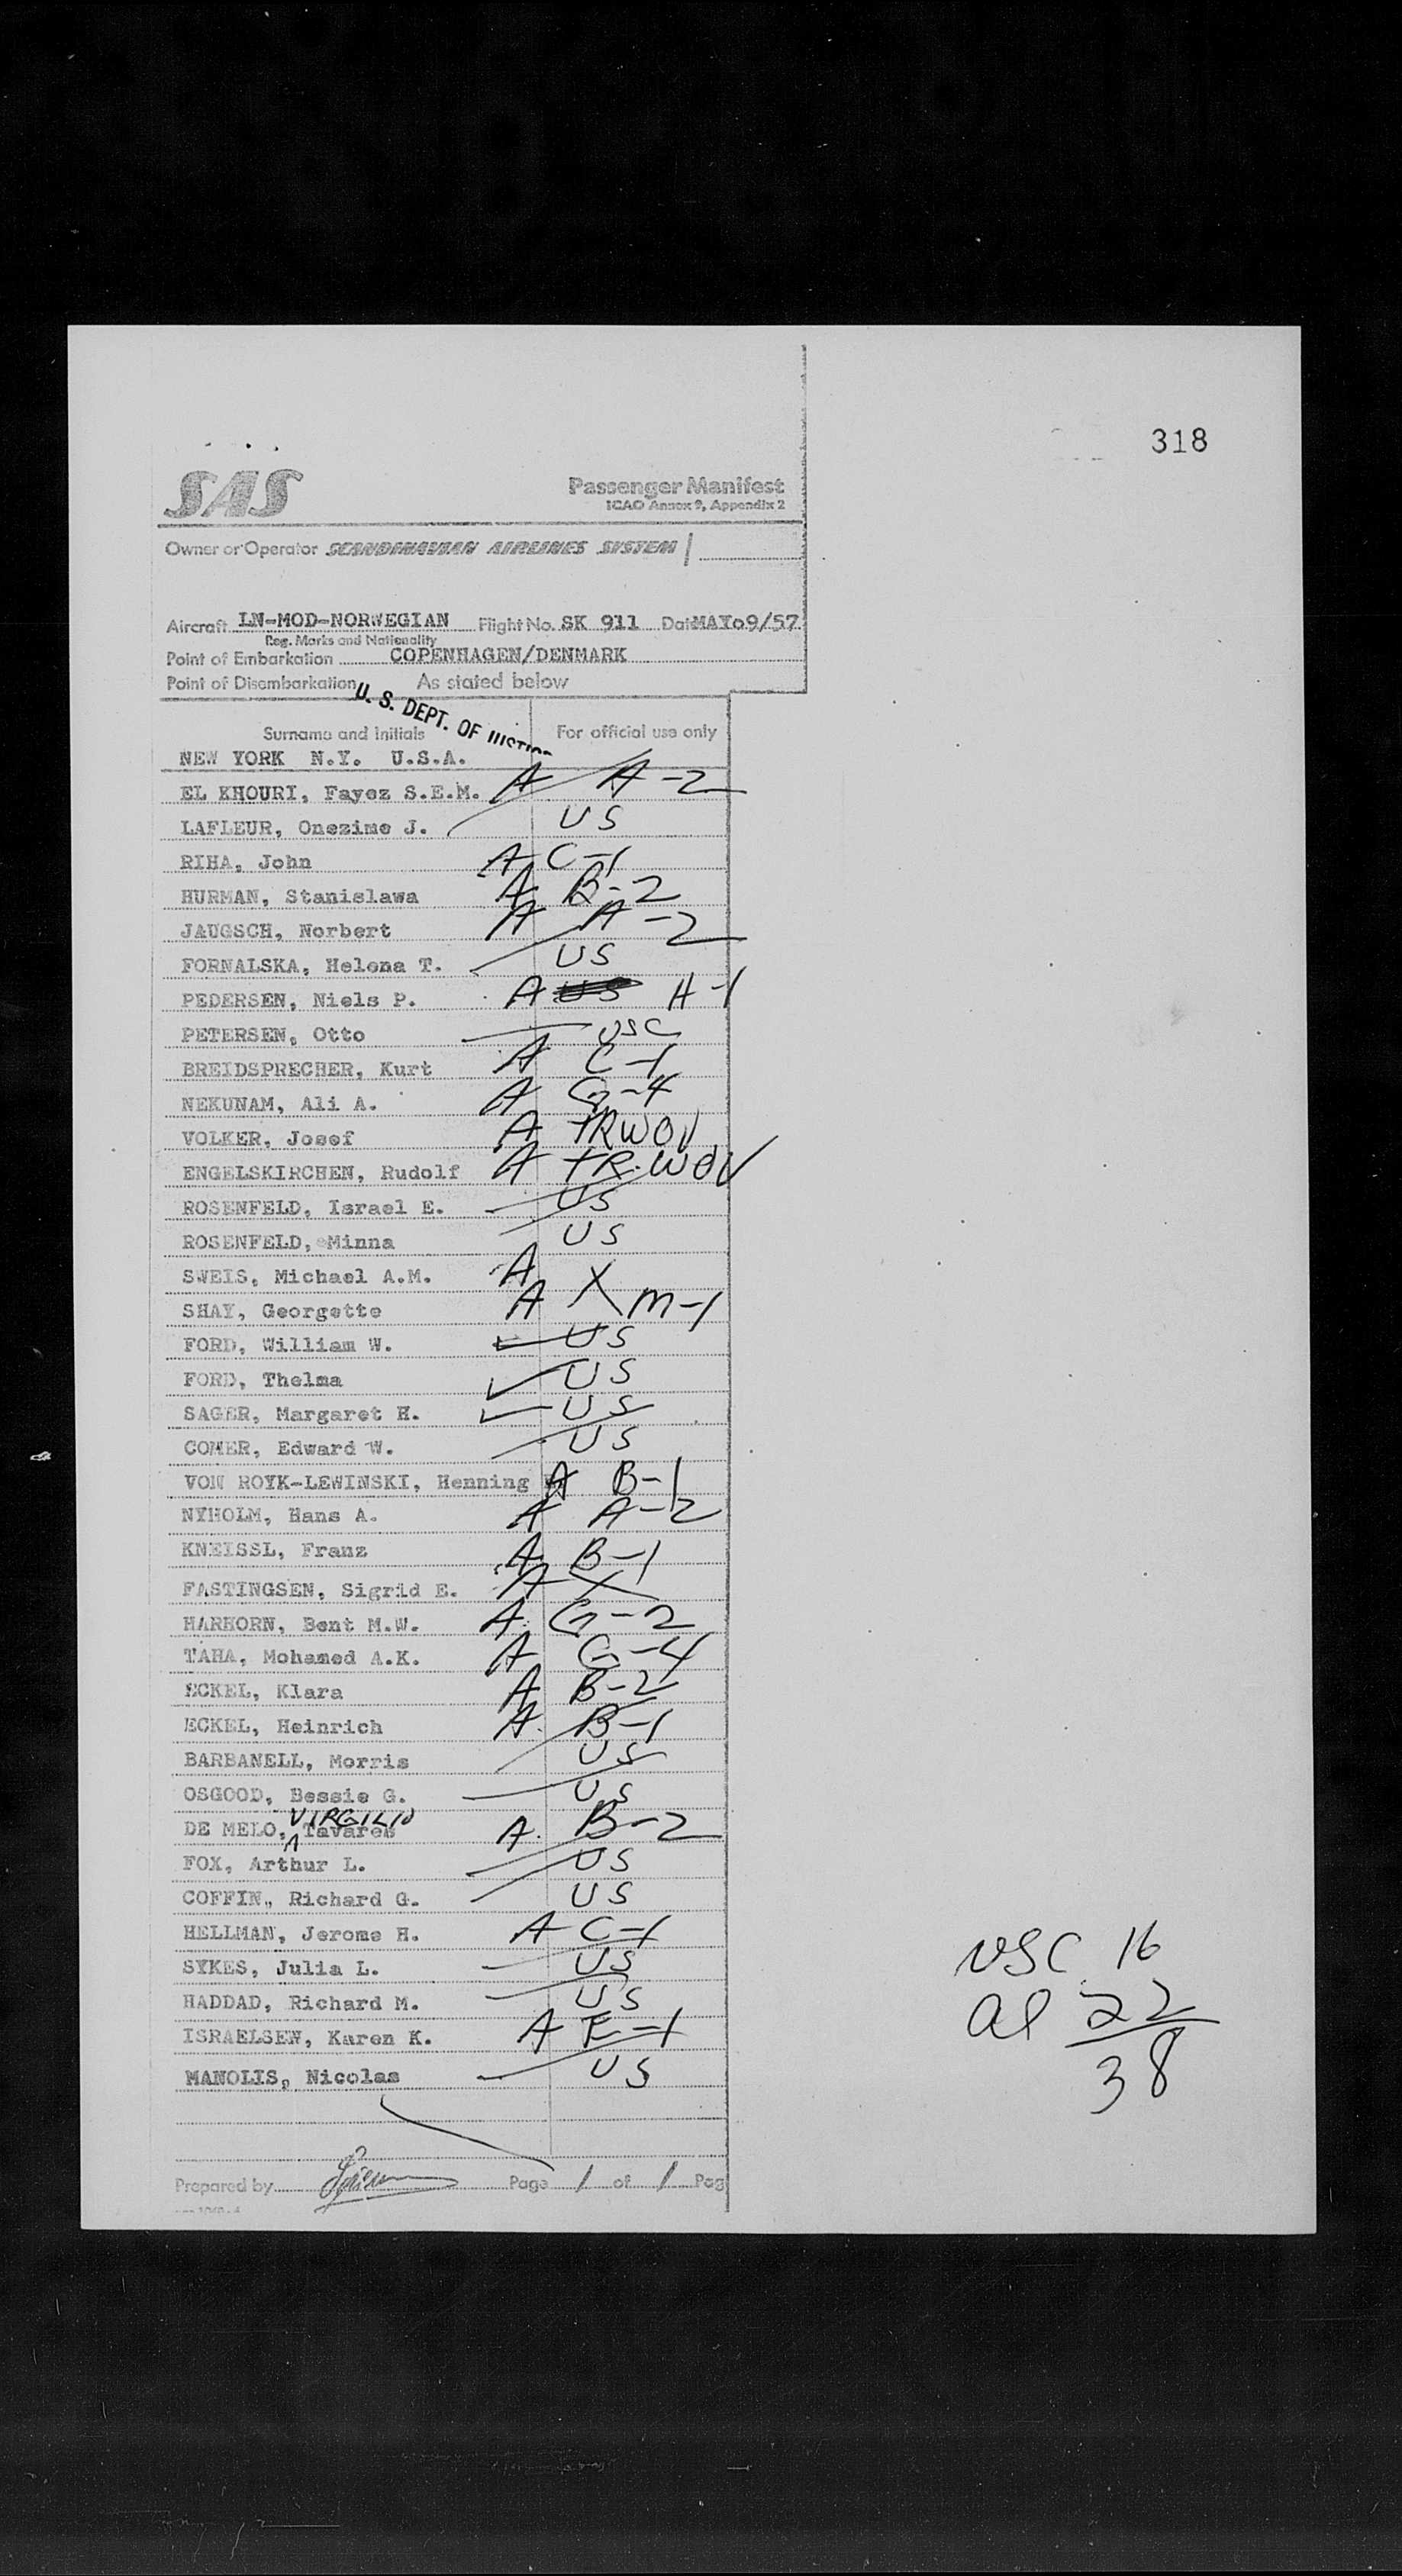 318
SAS
Passenger Manifest
ICAO Annex 9, Appendix 2
Owner or Operator SCANDINAVIAN AIRLINES SYSTEM
Aircraft LN-MOD-NORWEGIAN Flight No. SK 911 Date MAY 09/57
Reg. Marks and Nationality
Point of Embarkation COPENHAGEN/DENMARK
Point of Disembarkation As stated below
U. S. DEPT. OF JUSTICE
Surname and initials For official use only
NEW YORK N.Y. U.S.A.
EL KHOURI, Fayez S.E.M. A A-2
LAFLEUR, Onezime J. US
RIHA, John A C-1
HURMAN, Stanislawa A B-2
JAUGSCH, Norbert A A-2
FORNALSKA, Helena T. US
PEDERSEN, Niels P. A US H-1
PETERSEN, Otto USC
BREIDSPRECHER, Kurt A C-1
NEKUNAM, Ali A. A G-4
VOLKER, Josef A TRWOV
ENGELSKIRCHEN, Rudolf A TR.WOV
ROSENFELD, Israel E. US
ROSENFELD, Minna US
SWEIS, Michael A.M. A X
SHAY, Georgette A M-1
FORD, William W. US
FORD, Thelma US
SAGER, Margaret H. US
COMER, Edward W. US
VON ROYK-LEWINSKI, Henning A B-1
NYHOLM, Hans A. A A-2
KNEISSL, Franz A B-1
FASTINGSEN, Sigrid E. A X
HARHORN, Bent M.W. A G-2
TAHA, Mohamed A.K. A G-4
ECKEL, Klara A B-2
ECKEL, Heinrich A B-1
BARBANELL, Morris US
OSGOOD, Bessie G. US
VIRGILIO
DE MELO, Tavares A B-2
FOX, Arthur L. US
COFFIN, Richard G. US
HELLMAN, Jerome H. A C-1
SYKES, Julia L. US
HADDAD, Richard M. US
ISRAELSEN, Karen K. A E-1
MANOLIS, Nicolas US
USC 16
al 22
38
Prepared by Page 1 of 1 Pag